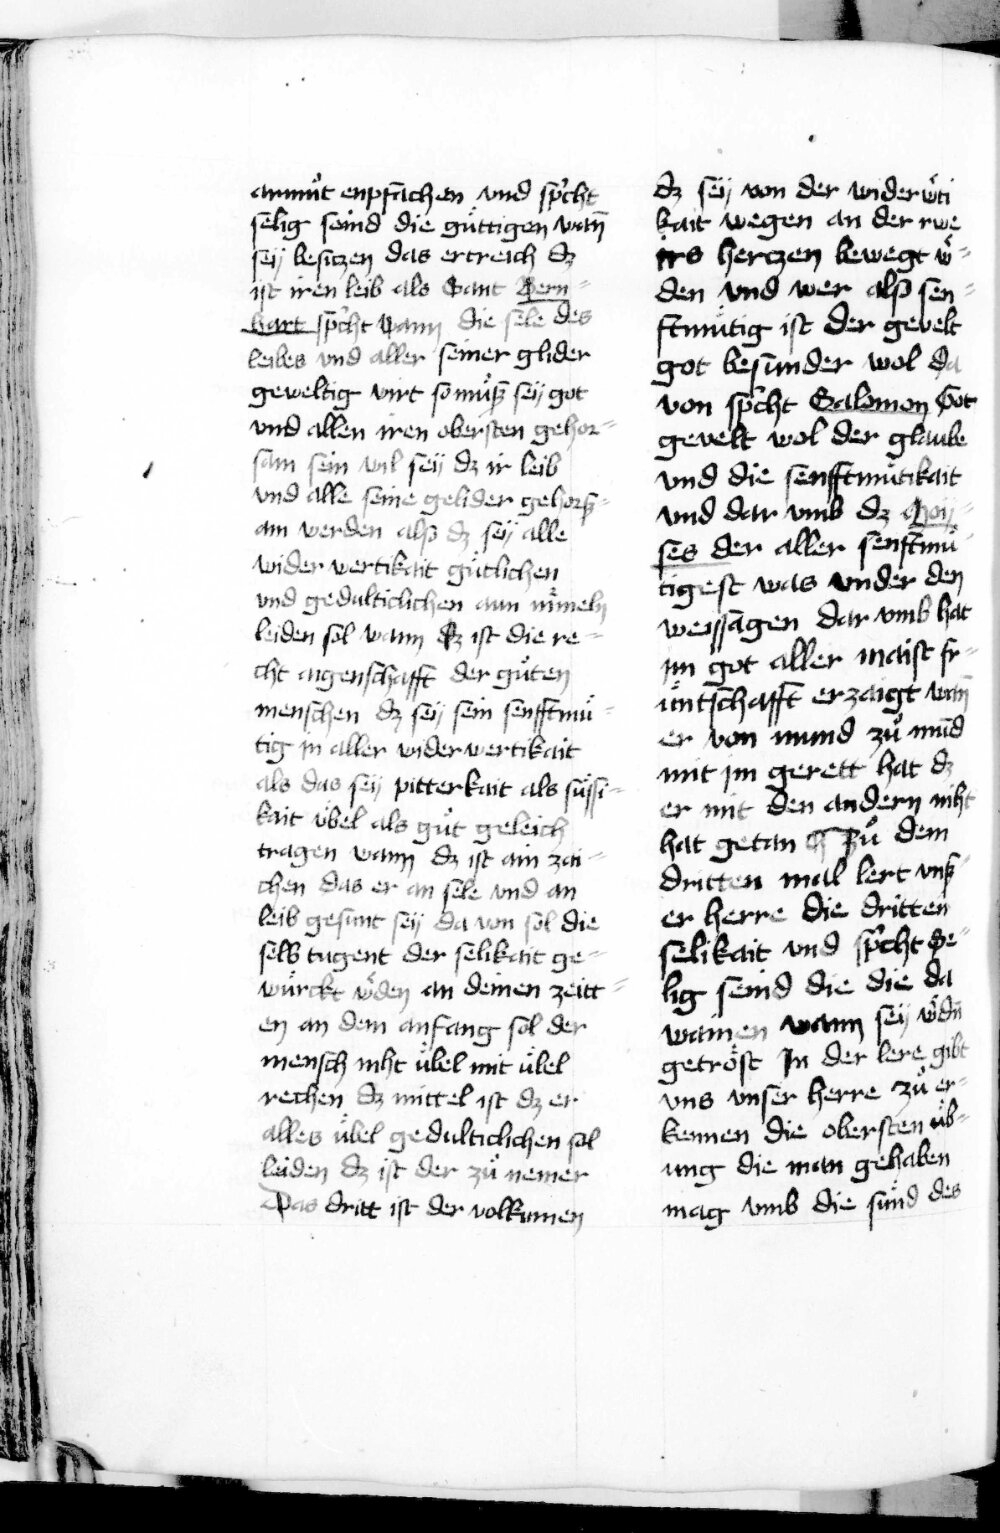 armuͦt enpfachen vnd sp̃cht
selig seind die guͤttigen wañ
seÿ besitzen das ertreich dz
ist iren leib als Sant Bern⸗
hart sp̃cht Wann die sele des
leibes vnd aller seiner glider
geweltig wirt so muͦß seÿ got
vnd allen iren obersten gehor⸗
sam sein wil seÿ dz ir leib
vnd alle seine gelider gehorß⸗
am werden alß dz seÿ alle
wider wertikait guͤtlichen
vnd gedulticlichen aun murmeln
leiden sol wann dz ist die re⸗
cht aigenschafft der guͦten
menschen dz seÿ sein senfftmuͤ⸗
tig in aller wider wertikait
als das seÿ pitterkait als suͤssi⸗
kait uͤbel als guͦt geleich
tragen wann dz ist ain zai⸗
chen das er an sele vnd an
leib gesunt seÿ da von sol die
selb tugent der selikait ge⸗
wuͤrckt wᵒden an deinen zeitt⸗
en an dem anfang sol der
mensch niht uͤbel mit uͤbel
rechen dz mittel ist dz er
alles uͤbel gedulticlichen sol
leiden dz ist der zuͦ nemer
Das dritt ist der volkumen
dz seÿ von der wider wᵒti
kait wegen an der rwe
irs hertzen bewegt wᵒ⸗
den vnd wer alß sen⸗
ftmuͤtig ist der gevelt
got besunder wol da
von sp̃cht Salomon Got
gevelt wol der glaube
vnd die senfftmuͤtikait
vnd dar vmb dz Moÿ⸗
ses der aller senftmuͤ⸗
tigest was vnder den
weissagen dar vmb hat
im got aller maist fr⸗
uͤntschafft erzaigt wañ
er von mund zuͦ mũd
mit im gerett hat dz
er mit den andern niht
hat getan ¶ Zuͦ dem
dritten mal lert vnß
er herre die dritten
selikait vnd sp̃cht Se⸗
lig seind die die da
wainen wann seÿ wᵒdñ
getroͤst In der lere gibt
vns vnser herre zuͦ er⸗
kennen die obersten uͤb⸗
ung die man gehaben
mag vmb die suͤnd des